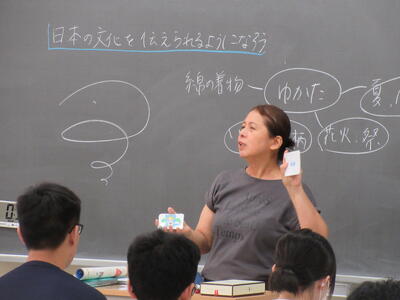 日本の文化を伝えられるようになろう
綿の着物
ゆかた
夏
柄
花火、祭